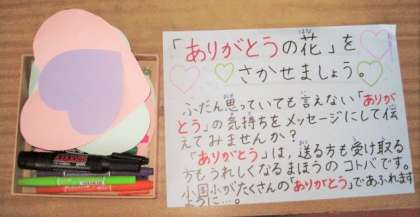 「ありがとうの花」を
さかせましょう。
ふだん思っていても言えない「ありが
とう」の気持ちをメッセージにして伝
えてみませんか?
「ありがとう」は、送る方も受け取る
方もうれしくなるまほうのコトバです。
小国小がたくさんの「ありがとう」であふれます
ように…。